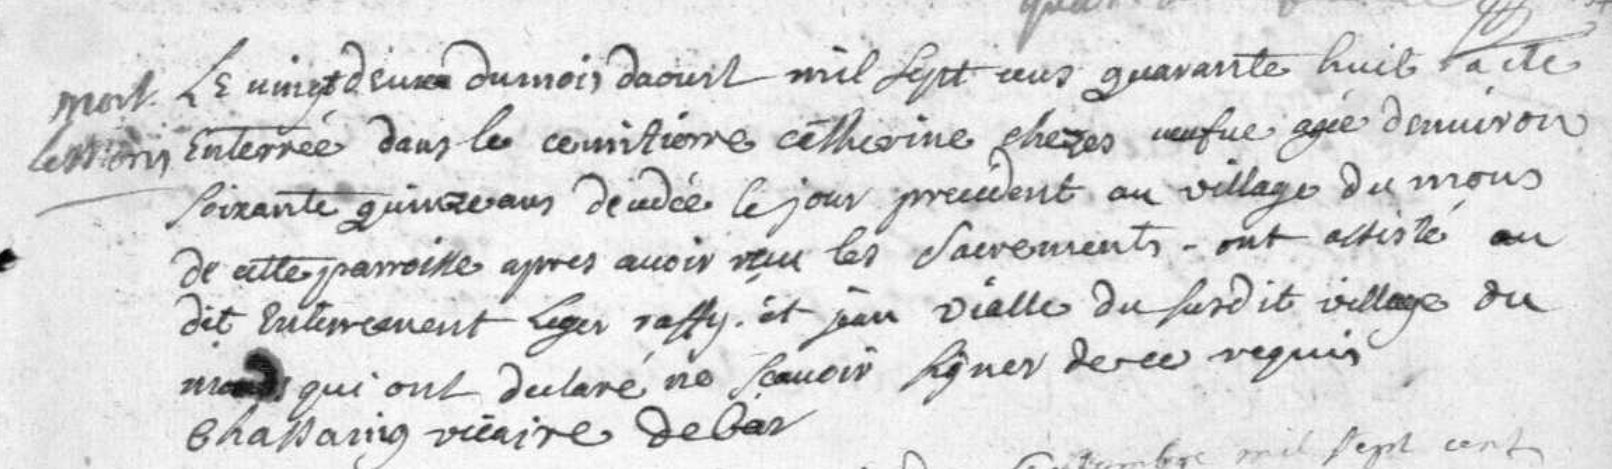 mort
Le vingt deux du mois daoust mil sept cens quarante huit a ete
Enterrée dans le cemitierre catherine chezes veufue agée denuiron
soixante quinze ans decedée le jour precedent au village du mons
de cette parroisse apres auoir recu les sacrements - ont assisté au
dit Enterrement Leger raffy et jean vialle du susdit village du
mons qui ont declaré ne scauoir signer de ce requis
Chassaing vicaire de bar
mil sept cent